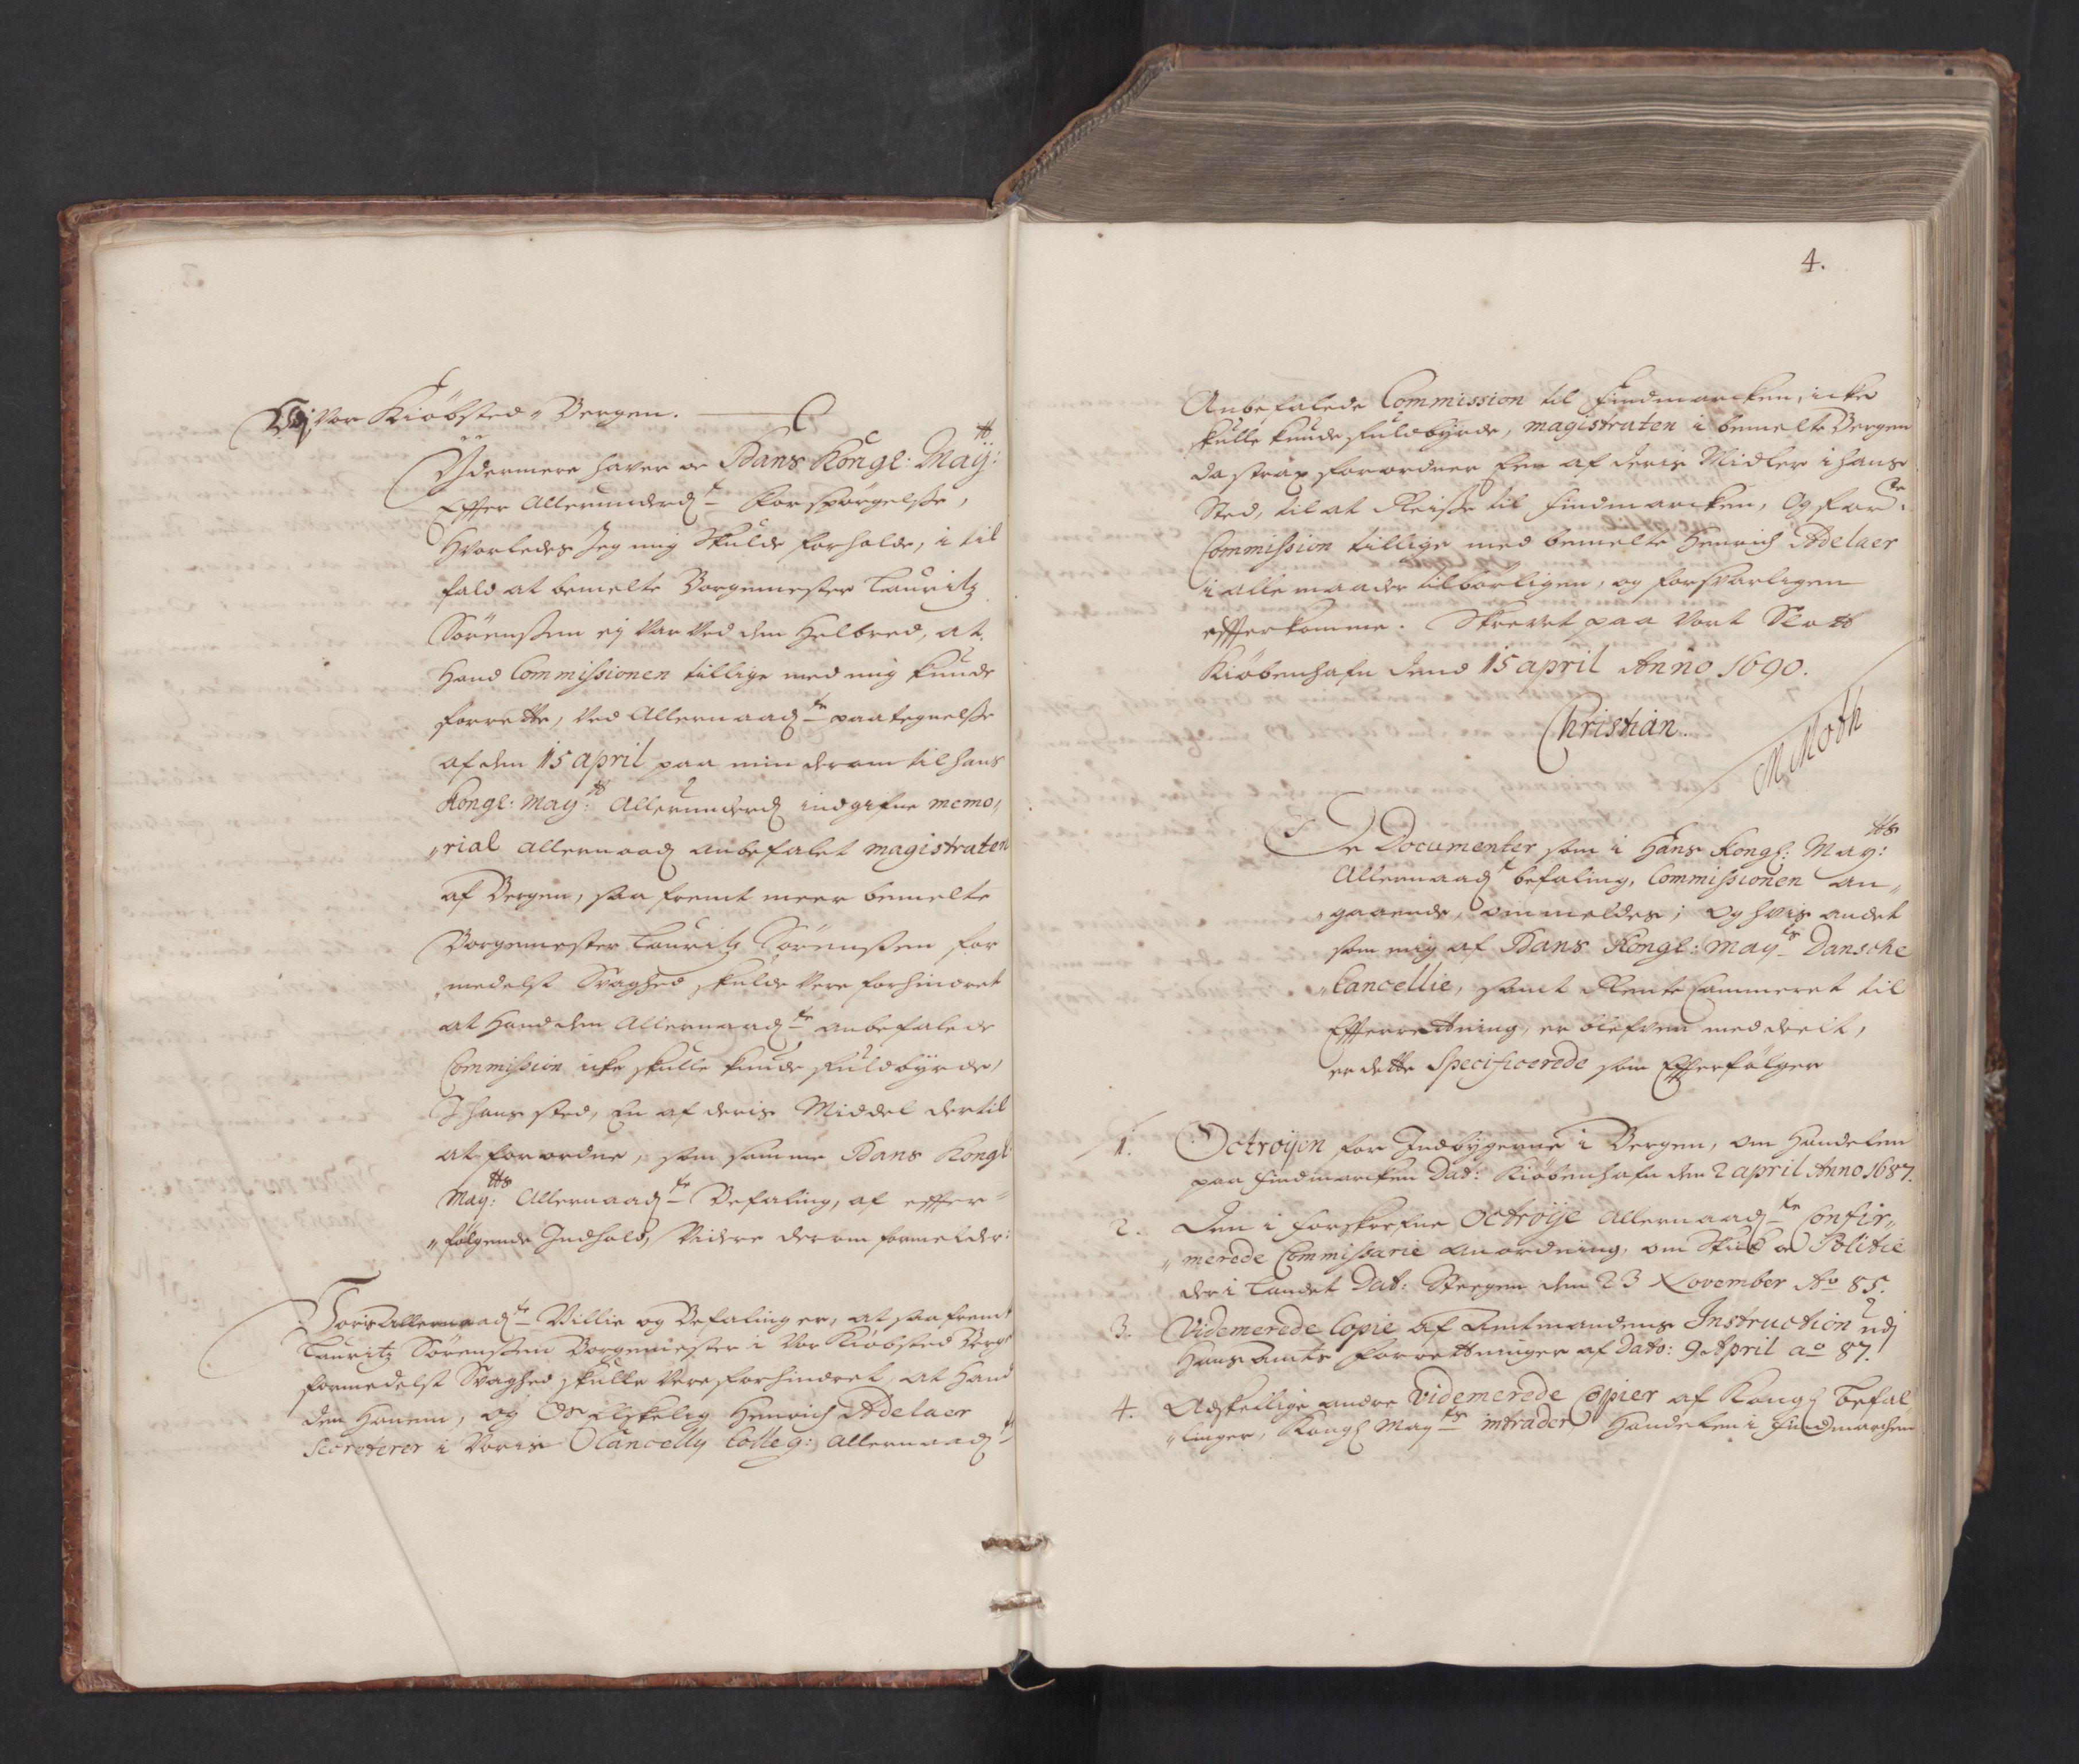 Udj Vor Kiöbsted Bergen.
Ydermere hafver och Hans Kongl: May:tt
Effter Allerunderd:te Forspörgelsse,
Hvorledes Jeg mig skulde forholde, i til
fald at bemelte Borgemester Lauritz
Sörenssen ej var ved den Helbred, at
Hand Commissionen tillige med mig kunde
forrette, ved Allernaad:te paategnelsse
af den 15 april paa min derom til hans
Kongl: May:tt Allerunderd indgifne memo„
„rial allernaad anbefalet magistraten
af Bergen, saa fremt meer bemelte
Borgemester Lauritz Sörenssen for
„medelst Svaghed skulde vere forhindret
at Hand den Allernaad:te anbefalede
Commission icke skulle kunde fuldbyrde,
I hans sted, En af deris Middel dertil
at forordne, som samme Hans Kongl
May:tts Allernaad:te Befaling, af effter=
„fölgende Indhold, Videre derom formelder:
Voris Allernaad:te Villie og Befaling er, at saa fremt
Lauritz Sörenssen Borgemester i Vor Kiöbsted Berg
formedelst Svaghed skulle vere forhindret, at Hand
den Hannem, og Os Elskelig Henrich Adelaer
Secreterer i Voris Cancelly Colleg: Allernaad:te
4.
Anbefalede Commission til Findmarcken, icke
skulle kunde fuldbyrde, magistraten i bemelte Bergen
da strax forordner Een af deris Midler i hans
Sted, til at Reisse til Findmarcken, Og for:ne
Commission tillige med bemelte Henrich Adelaer
i alle maader tilbörligen, og forsvarligen
effterkomme. Skrevet paa Vort Slott
Kiöbenhafn dend 15 april Anno 1690.
Christian.
M Moth
De Documenter som i Hans Kongl: May:tts
Allernaad:te befaling, Commissionen an„
„gaaende, ommeldes; og hvis andet
som mig af Hans Kongl: May:ts Dansche
Cancellie, samt Rente Cammeret til
Effterrettning, er blefven meddeelt,
er dette Specificerede som Effterfölger
1. Octroijen for Indbÿgerne i Bergen, om Handelen
paa Findmarcken Dat: Kiöbenhafn den 2 april Anno 1687.
2. Den i forskrefne Octroije Allernaad:te Confir„
„merede Commissarie anordning, om Skick og Politie
der i Landet Dat: Bergen den 23 November Ao 85.
3. Videmerede Copie af Amtmandens Instruction udj
Hans Amts Forrettninger af Dato: 9 April ao 87.
4. Adskellige andre Videmerede Copier af Kongl Befal
„linger, Kongl May:ts intrader, Handelen i Findmarchen